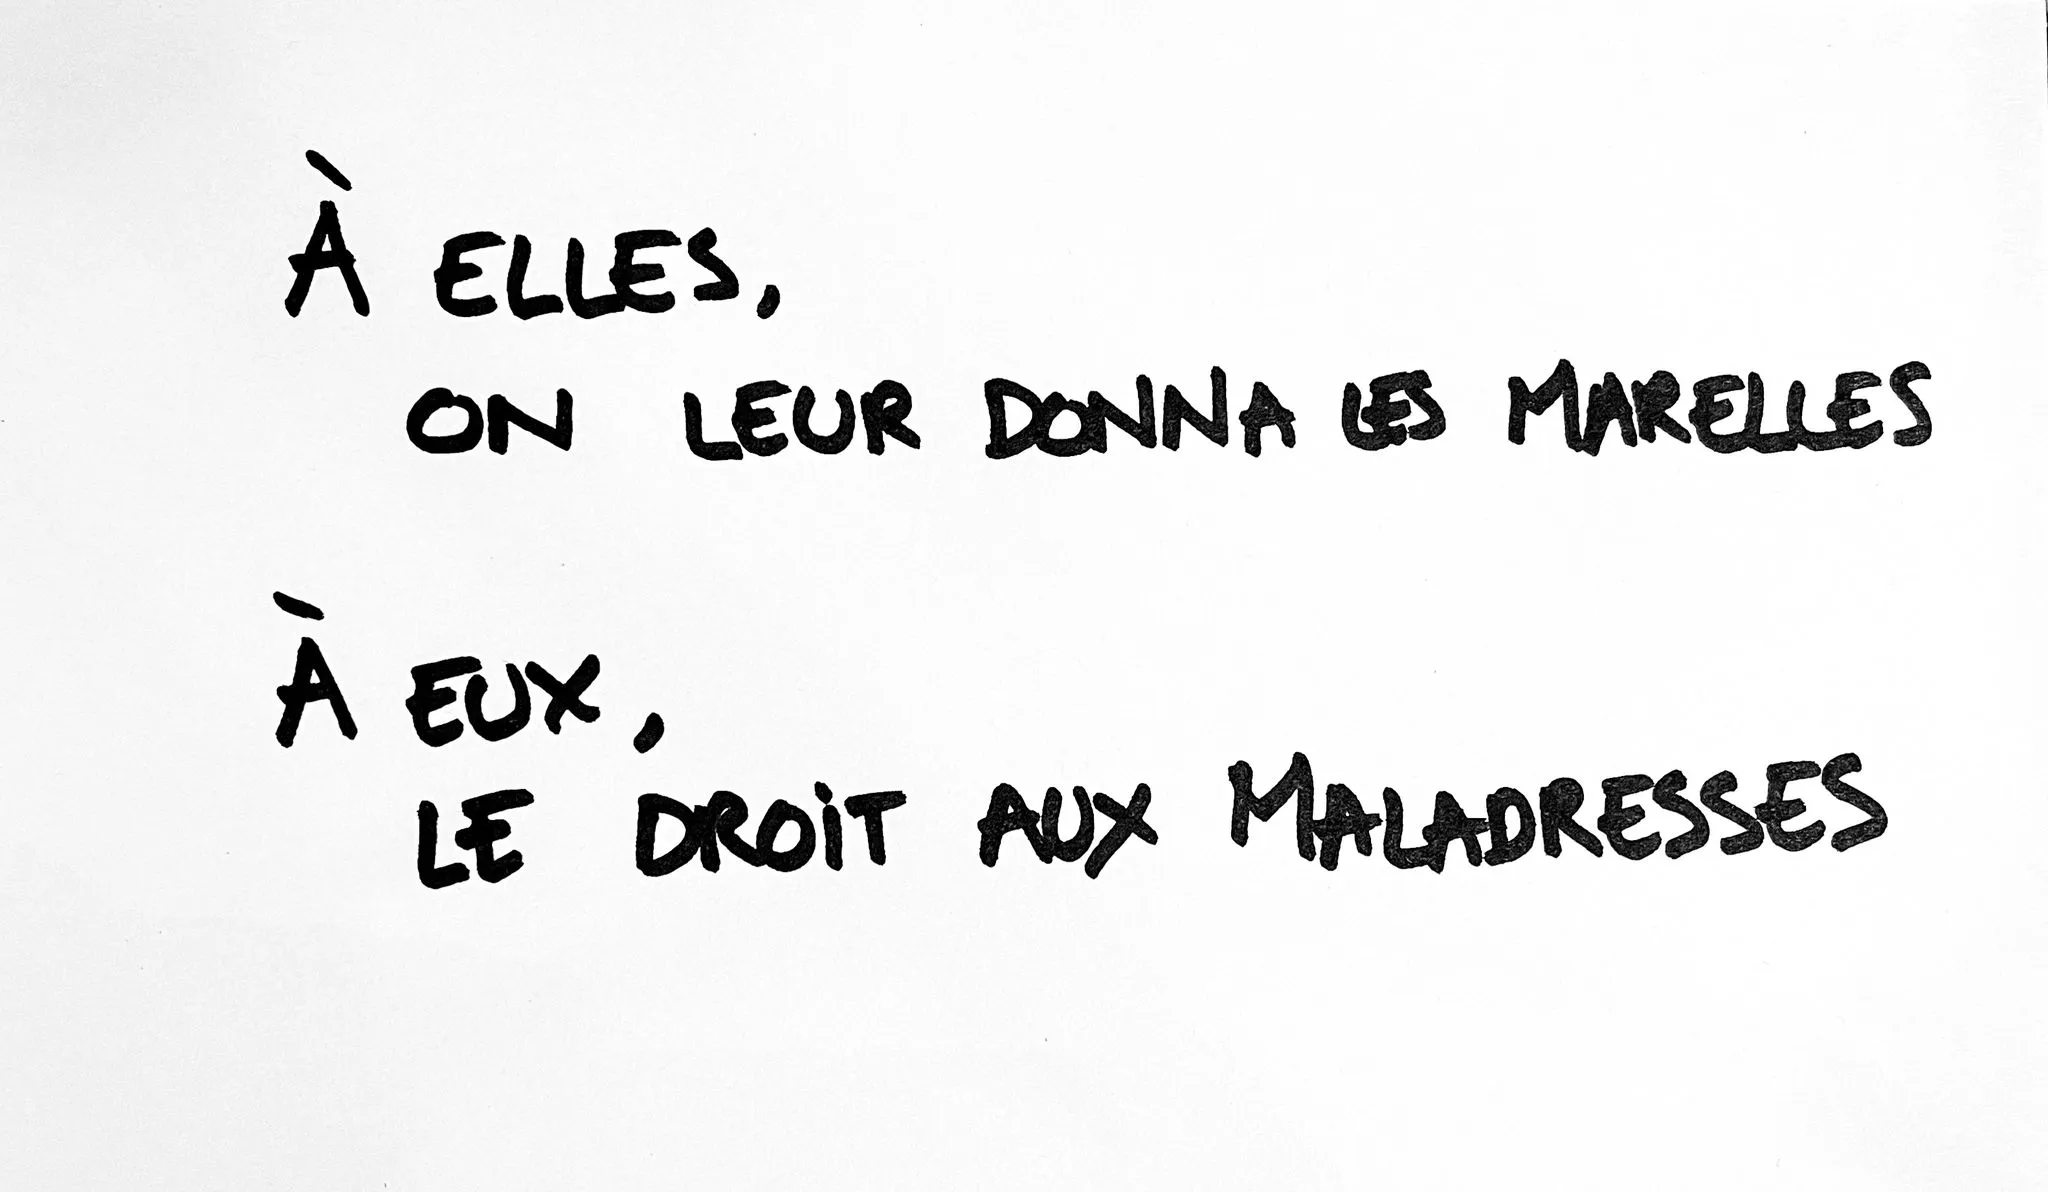 À ELLES,
ON LEUR DONNA LES MARELLES
À EUX,
LE DROiT AUX MALADRESSES